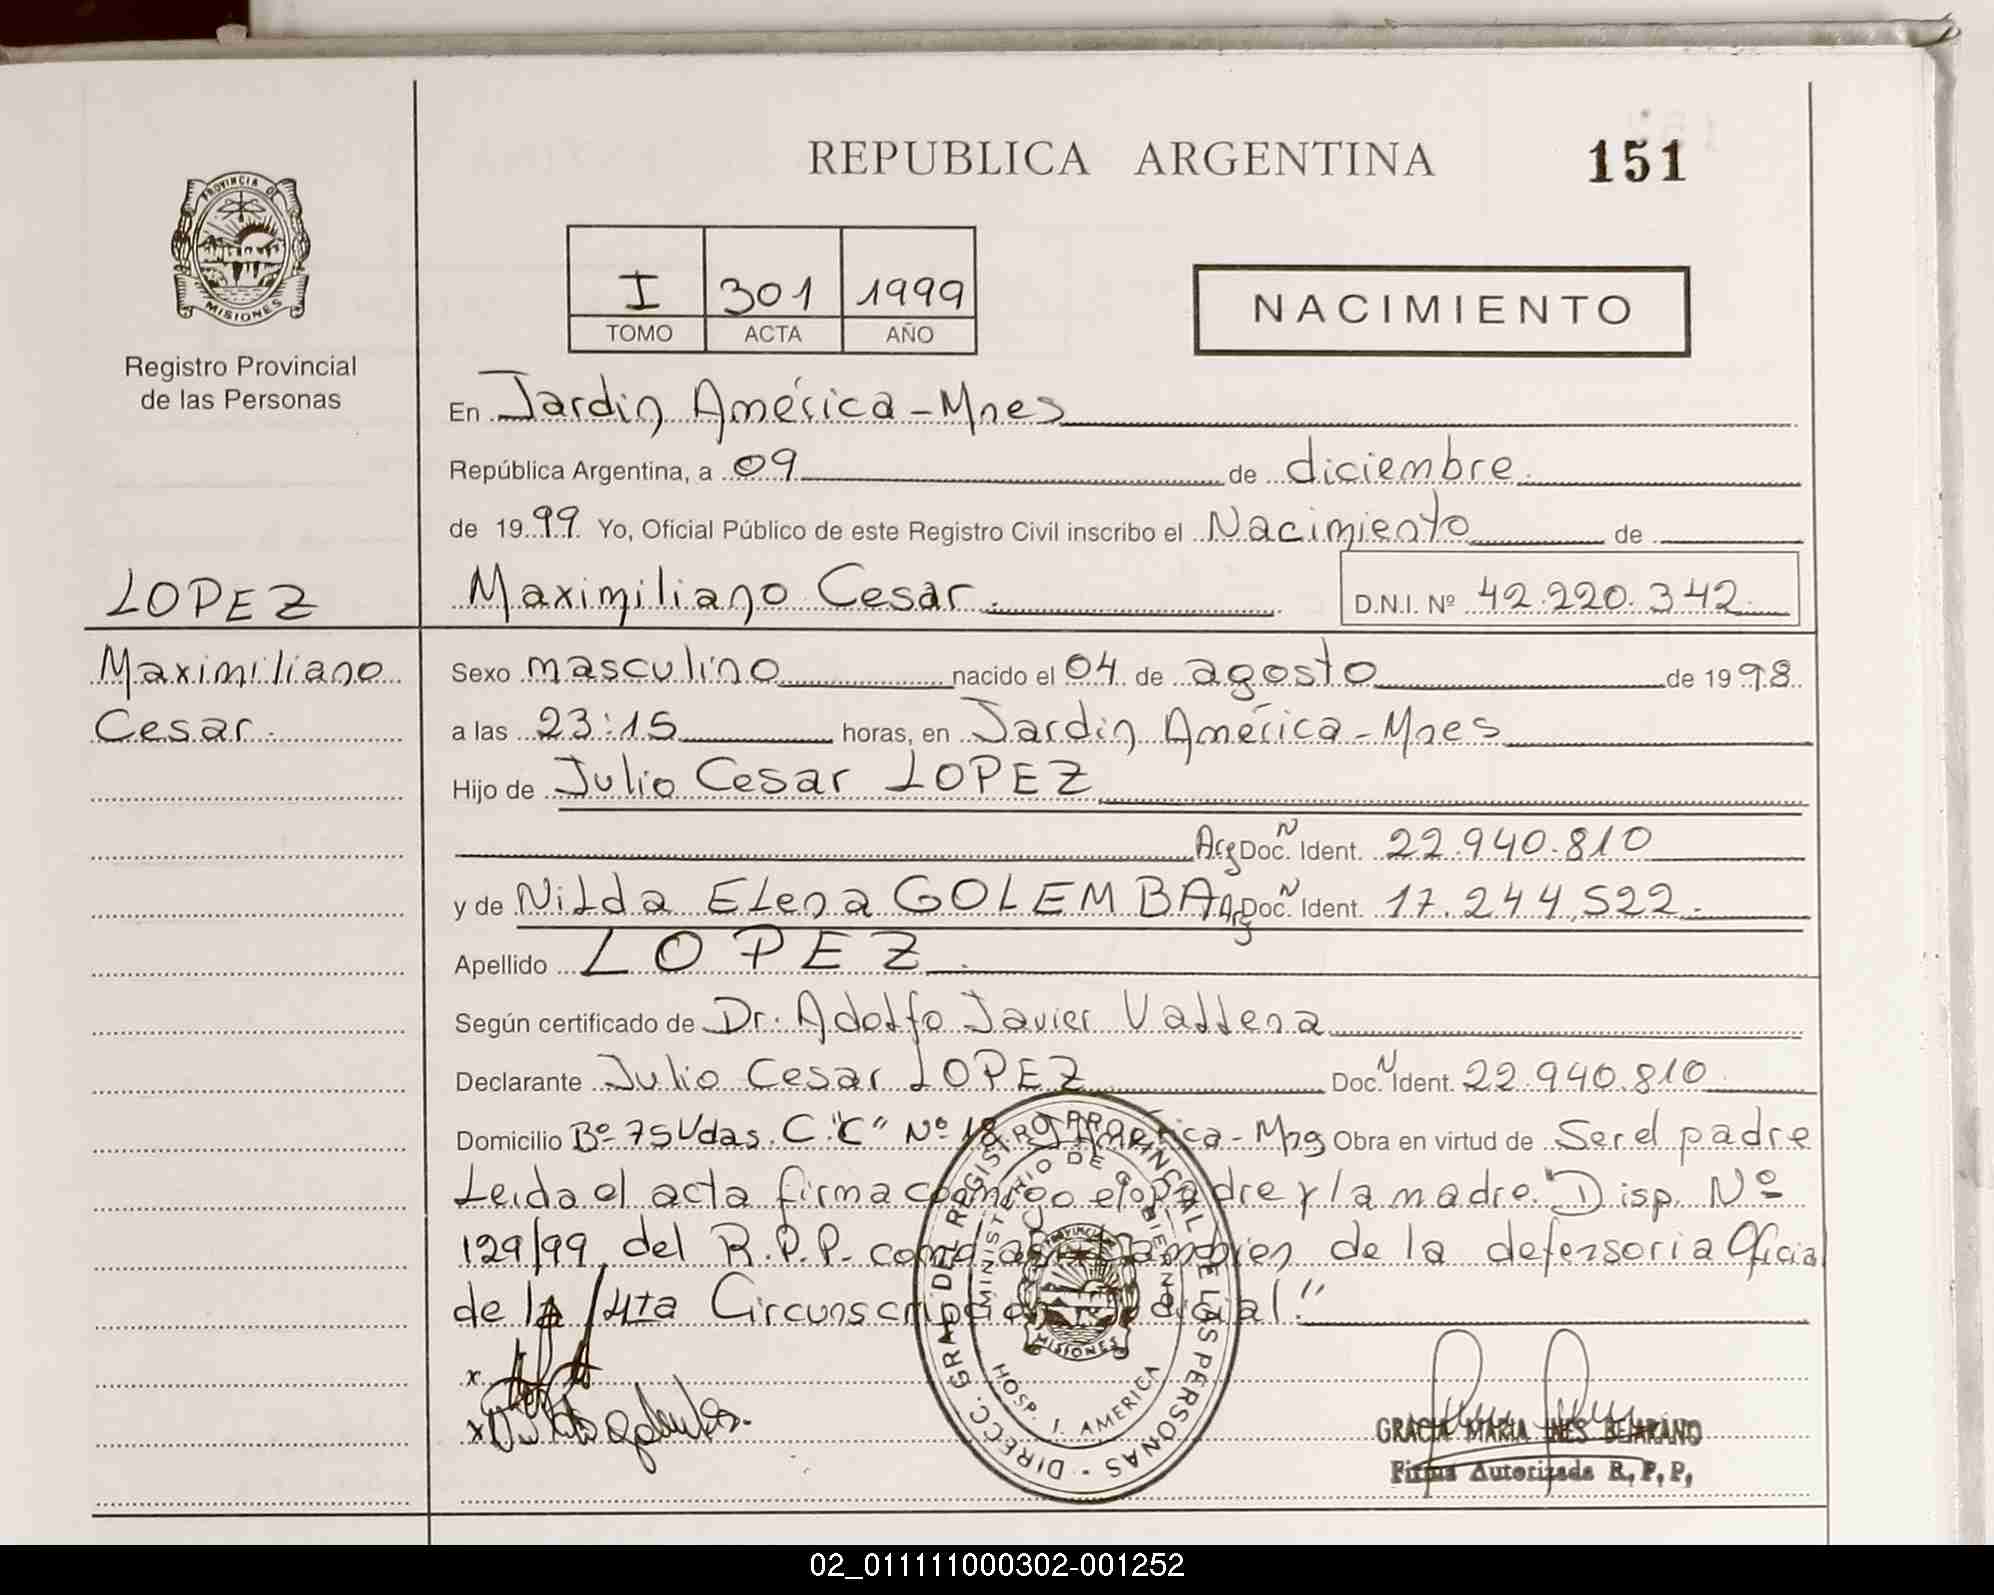 REPUBLICA ARGENTINA
151
PROVINCIA DE
MISIONES
Registro Provincial
de las Personas
I 301 1999
TOMO ACTA AÑO
NACIMIENTO
En Jardin América - Mnes
República Argentina, a 09 de diciembre
de 1999 Yo, Oficial Público de este Registro Civil inscribo el Nacimiento de
LOPEZ
Maximiliano Cesar.
Maximiliano Cesar. D.N.I. Nº 42.220.342
Sexo masculino nacido el 04 de agosto de 1998
a las 23:15 horas, en Jardin América - Mnes
Hijo de Julio Cesar LOPEZ
Arg Doc. N Ident. 22.940.810
y de Nilda Elena GOLEMBA Arg Doc. N Ident. 17.244,522.
Apellido LOPEZ.
Según certificado de Dr. Adolfo Javier
Declarante Julio Cesar LOPEZ Doc. N Ident. 22.940.810
Domicilio Bº 75 Vdas. C."C" Nº J. América - Mns Obra en virtud de Ser el padre
Leida el acta firma conmigo el padre y la madre. "Disp. Nº
129/99 del R.P.P. como asi tambien de la defensoria Oficial
de la 4ta Circunscripcion Judicial."
DIRECC. GRAL DEL REGISTRO PROVINCIAL DE LAS PERSONAS
MINISTERIO DE GOBIERNO
PROVINCIA
MISIONES
HOSP. J. AMERICA
x
x
GRACIA MARIA INES BEJARANO
Firma Autorizada R.P.P.
02_011111000302-001252